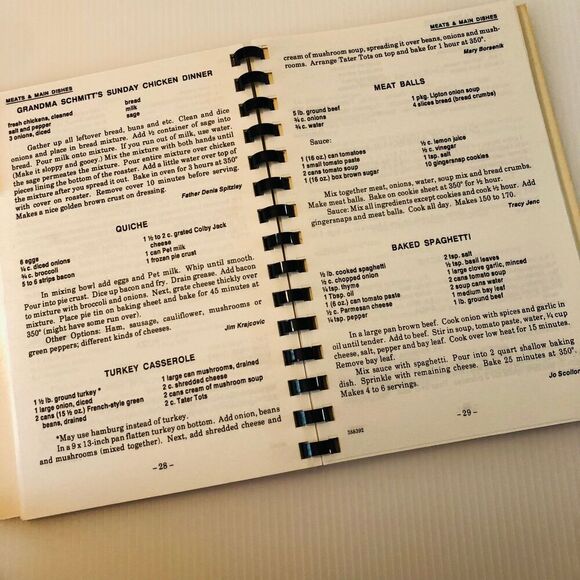 MEATS & MAIN DISHES
GRANDMA SCHMITT'S SUNDAY CHICKEN DINNER
fresh chickens, cleaned
salt and pepper
3 onions, diced
bread
milk
sage
Gather up all leftover bread, buns and etc. Clean and dice
onions and place in bread mixture. Add ½ container of sage into
bread. Pour milk onto mixture. If you run out of milk, use water.
(Make it sloppy and gooey.) Mix the mixture with both hands until
the sage permeates the mixture. Pour entire mixture over chicken
pieces lining the bottom of the roaster. Add a little water over top of
the mixture after you spread it out. Bake in oven for 3 hours at 350°
with cover on roaster. Remove cover 10 minutes before serving.
Makes a nice golden brown crust on dressing.
Father Denis Spitzley
QUICHE
6 eggs
¼ c. diced onions
¾ c. broccoli
5 to 6 strips bacon
1 ½ to 2 c. grated Colby Jack
cheese
1 can Pet milk
1 frozen pie crust
In mixing bowl add eggs and Pet milk. Whip until smooth.
Pour into pie crust. Dice up bacon and fry. Drain grease. Add bacon
to mixture with broccoli and onions. Next, grate cheese thickly over
mixture. Place pie tin on baking sheet and bake for 45 minutes at
350° (might have some run over).
Other Options: Ham, sausage, cauliflower, mushrooms or
green peppers; different kinds of cheeses.
Jim Krajcovic
TURKEY CASSEROLE
1 ½ lb. ground turkey *
1 large onion, diced
2 cans (15 ½ oz.) French-style green
beans, drained
1 large can mushrooms, drained
2 c. shredded cheese
2 cans cream of mushroom soup
2 c. Tater Tots
*May use hamburg instead of turkey.
In a 9 x 13-inch pan flatten turkey on bottom. Add onion, beans
and mushrooms (mixed together). Next, add shredded cheese and
– 28 –
MEATS & MAIN DISHES
cream of mushroom soup, spreading it over beans, onions and mush-
rooms. Arrange Tater Tots on top and bake for 1 hour at 350°.
Mary Borsenik
MEAT BALLS
5 lb. ground beef
¾ c. onions
¾ c. water
1 pkg. Lipton onion soup
4 slices bread (bread crumbs)
Sauce:
1 (16 oz.) can tomatoes
1 small tomato paste
2 cans tomato soup
1 (16 oz.) box brown sugar
½ c. lemon juice
½ c. vinegar
1 tsp. salt
10 gingersnap cookies
Mix together meat, onions, water, soup mix and bread crumbs.
Make meat balls. Bake on cookie sheet at 350° for ½ hour.
Sauce: Mix all ingredients except cookies and cook ½ hour. Add
gingersnaps and meat balls. Cook all day. Makes 150 to 170.
Tracy Jenc
BAKED SPAGHETTI
½ lb. cooked spaghetti
½ c. chopped onion
½ tsp. thyme
1 Tbsp. oil
1 (6 oz.) can tomato paste
½ c. Parmesan cheese
¼ tsp. pepper
2 tsp. salt
½ tsp. basil leaves
1 large clove garlic, minced
2 cans tomato soup
2 soup cans water
1 medium bay leaf
1 lb. ground beef
In a large pan brown beef. Cook onion with spices and garlic in
oil until tender. Add to beef. Stir in soup, tomato paste, water, ¼ cup
cheese, salt, pepper and bay leaf. Cook over low heat for 15 minutes.
Remove bay leaf.
Mix sauce with spaghetti. Pour into 2 quart shallow baking
dish. Sprinkle with remaining cheese. Bake 25 minutes at 350°.
Makes 4 to 6 servings.
Jo Scollon
– 29 –
358392